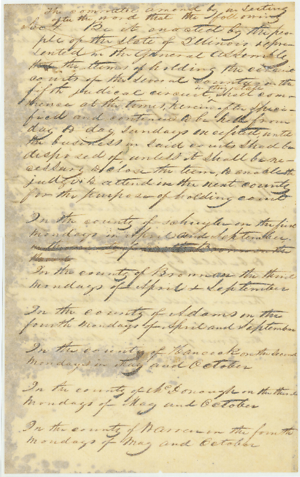 The committee amend by inserting
after the word that the following
Be it enacted by the peo-
ple of the state of Illinois repre-
sented in the General Assembly
the terms of holding the circuit
courts of the several counties in the
fifth judicial circuit shall com-
mence at the times herein after speci-
fied and continue to be held from
day to day Sundays excepted until
the business in said courts shall be
disposed of unless it shall be ne-
cessary to close the term, to enable the
judge to attend in the next county
for the purpose of holding court
In the county of Schuyler on the first
mondays in April and September
In the county of Brown on the third
mondays of April & September
In the county of Adams on the
fourth mondays of April and September
In the county of Hancock on the
mondays in May and October
In the county of McDonough on the third
mondays of May and October
In the county of Warren on the fourth
mondays of May and October